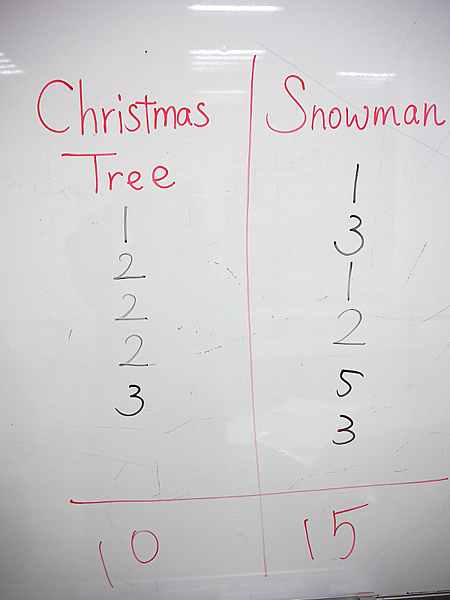 Christmas
Tree
1
2
2
2
3
10
Snowman
1
3
1
2
5
3
15